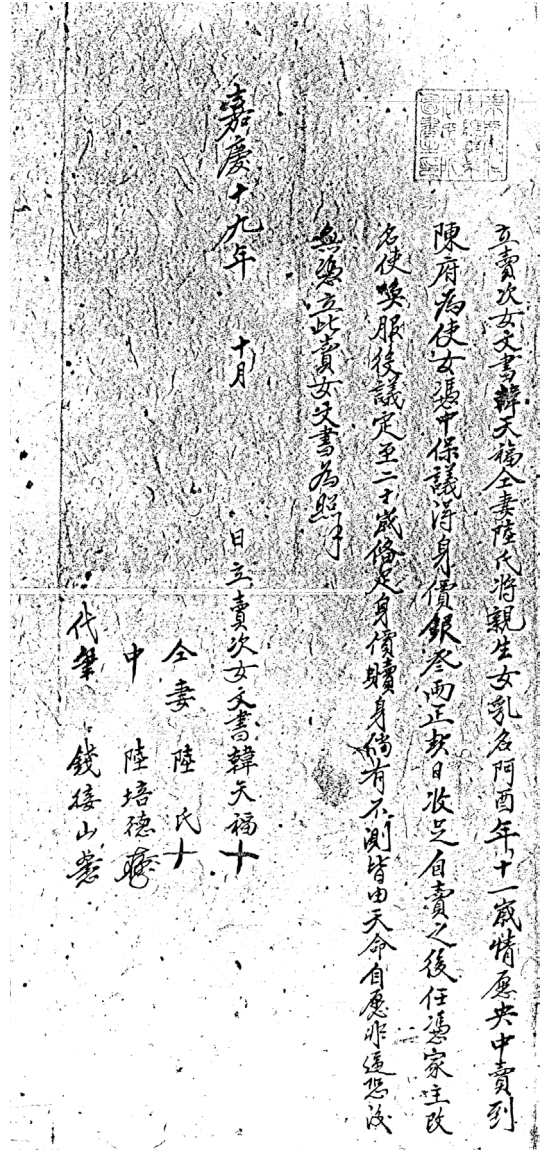 立賣次女文書韓天福仝妻陸氏將親生女乳名阿酉年十一歲情愿央中賣到
陳府為使女憑中保議得身價銀叁兩正契日收足自賣之後任憑家主改
名使喚服役議定至二十歲俻足身價贖身倘有不測皆由天命自愿非逼恐後
無憑立此賣女文書為照
嘉慶十九年 十月 日立賣次女文書韓天福十
仝妻 陸氏十
中 陸培德
代筆 錢接山